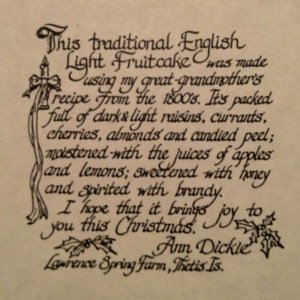 This traditional English
Light Fruitcake was made
using my great-grandmother's
recipe from the 1800's. It's packed
full of dark & light raisins, currants,
cherries, almonds and candied peel;
moistened with the juices of apples
and lemons; sweetened with honey
and spirited with brandy.
I hope that it brings joy to
you this Christmas.
Ann Dickie
Lawrence Spring Farm, Thetis Is.